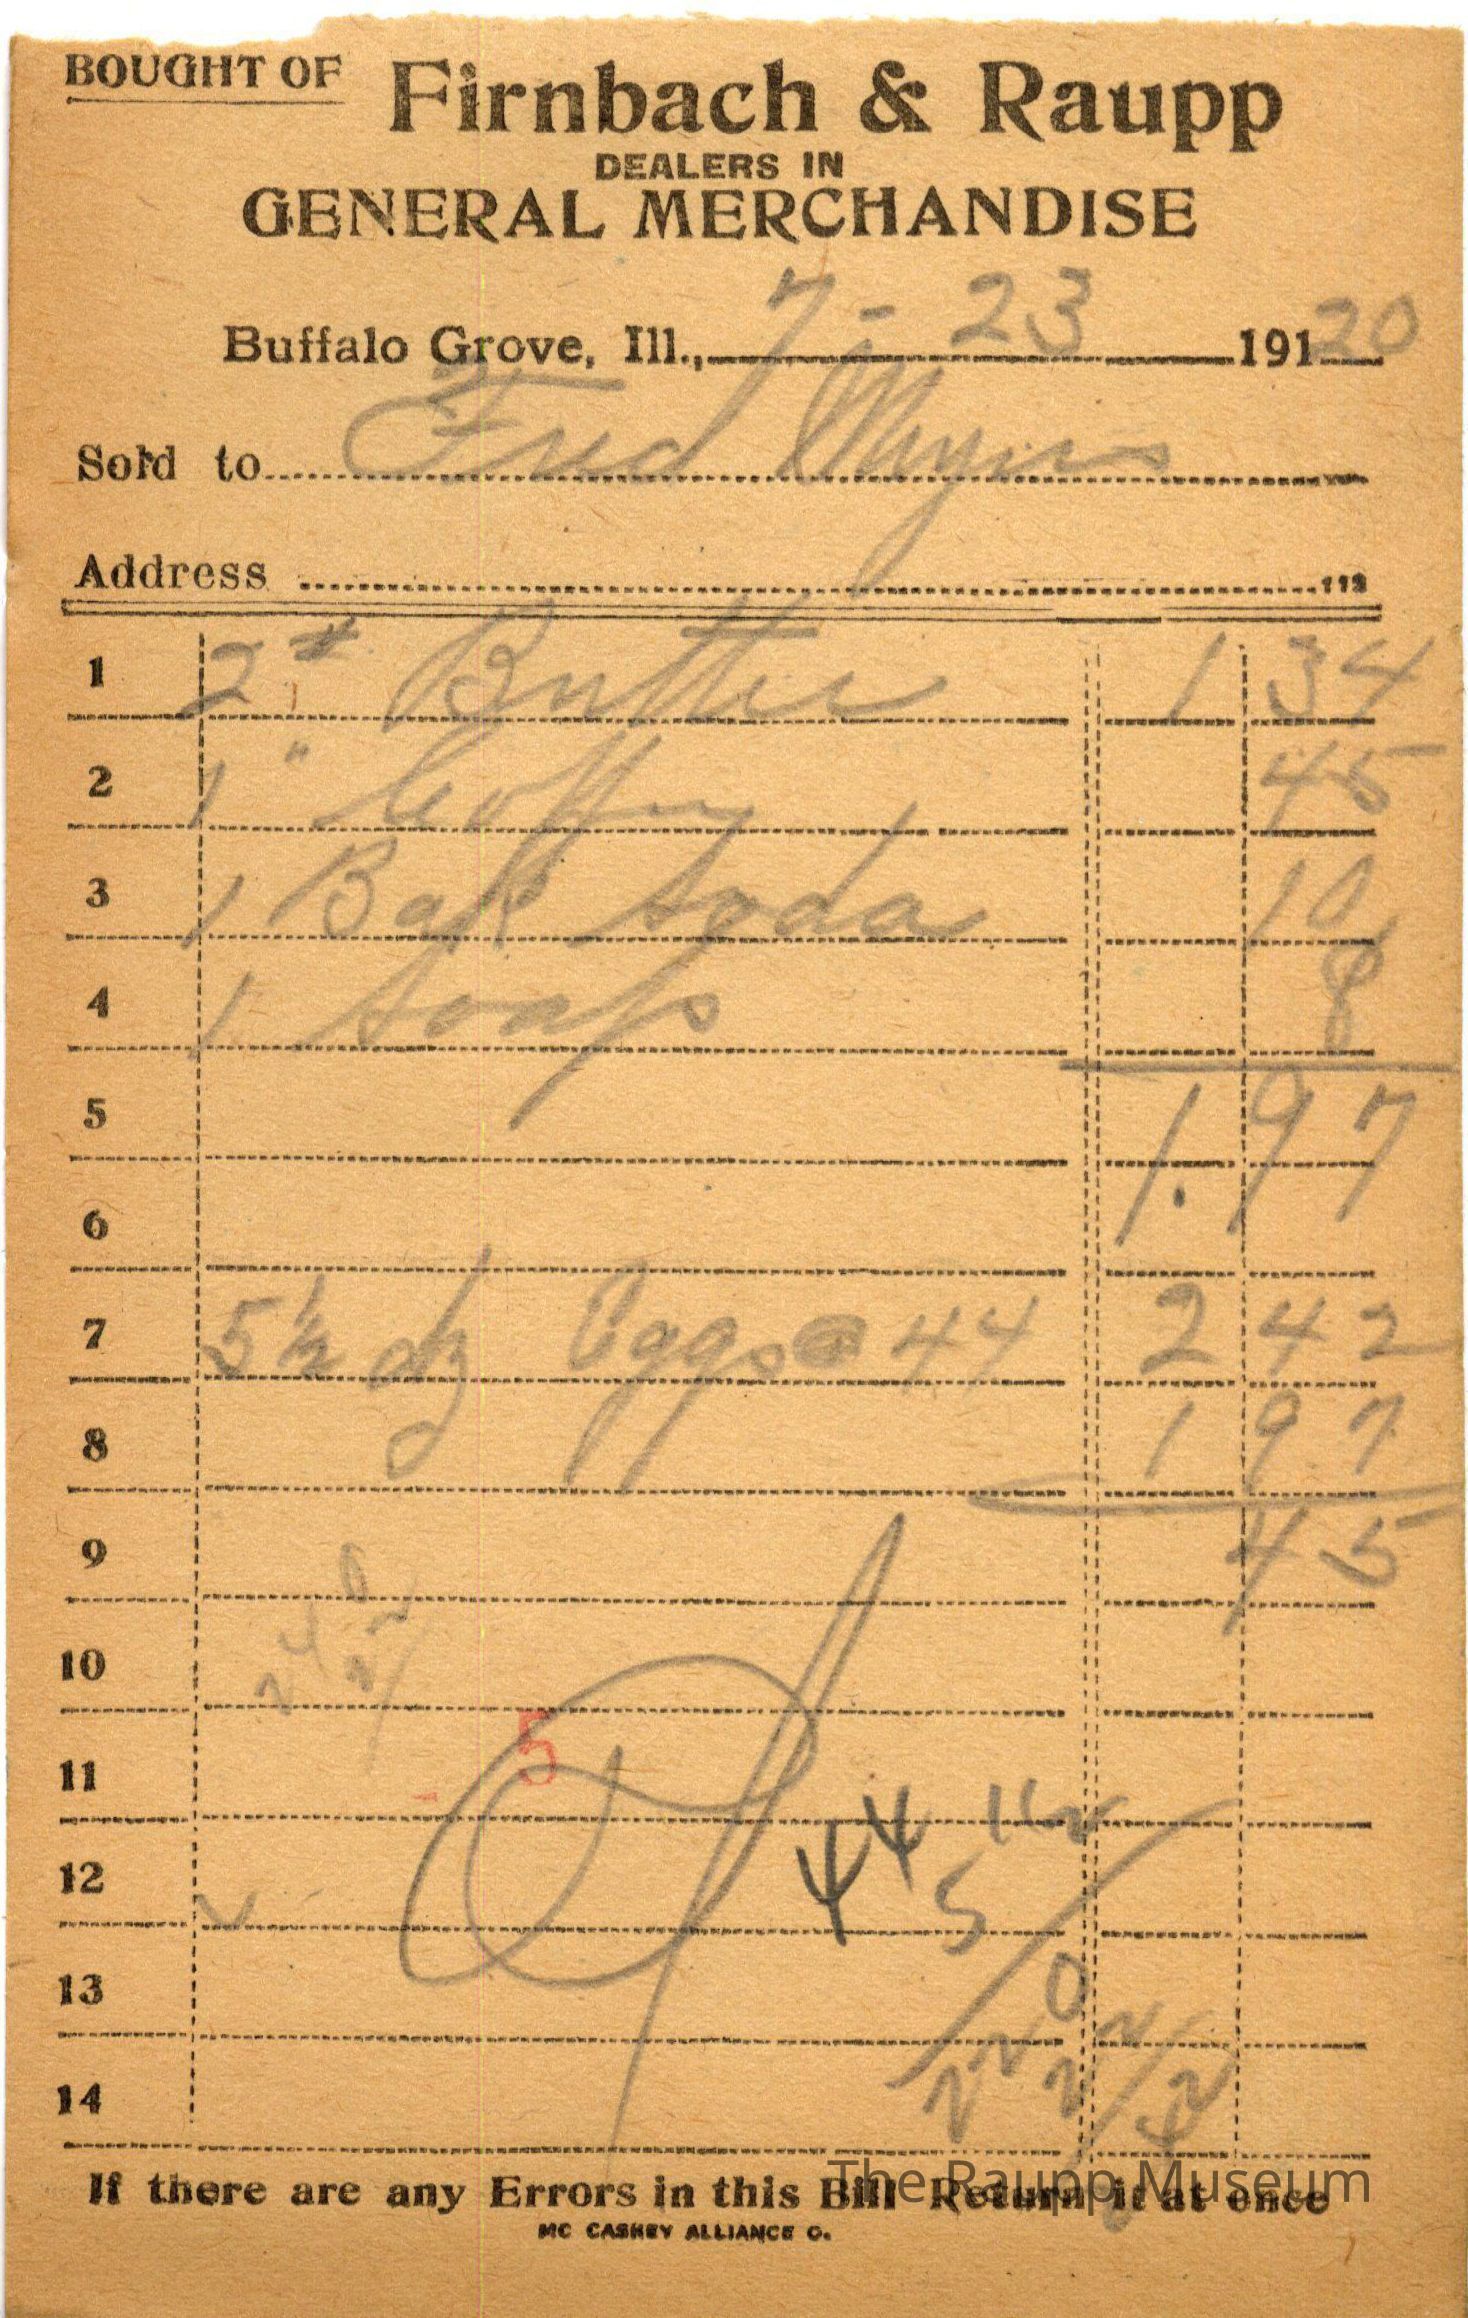 BOUGHT OF Firnbach & Raupp
DEALERS IN
GENERAL MERCHANDISE
Buffalo Grove, Ill., 7-23 19120
Sold to Fred Myers
Address
1 2 # Butter 1 34
2 1 " Coffee 45
3 1 Bak Soda 10
4 1 Soap 8
5 1.97
6
7 5½ dz Eggs @ 44 2 42
8 1 97
9 45
10
11 5
12 44 1/2
5
13
14
If there are any Errors in this Bill Return it at once
The Raupp Museum
MC CASKEY ALLIANCE O.